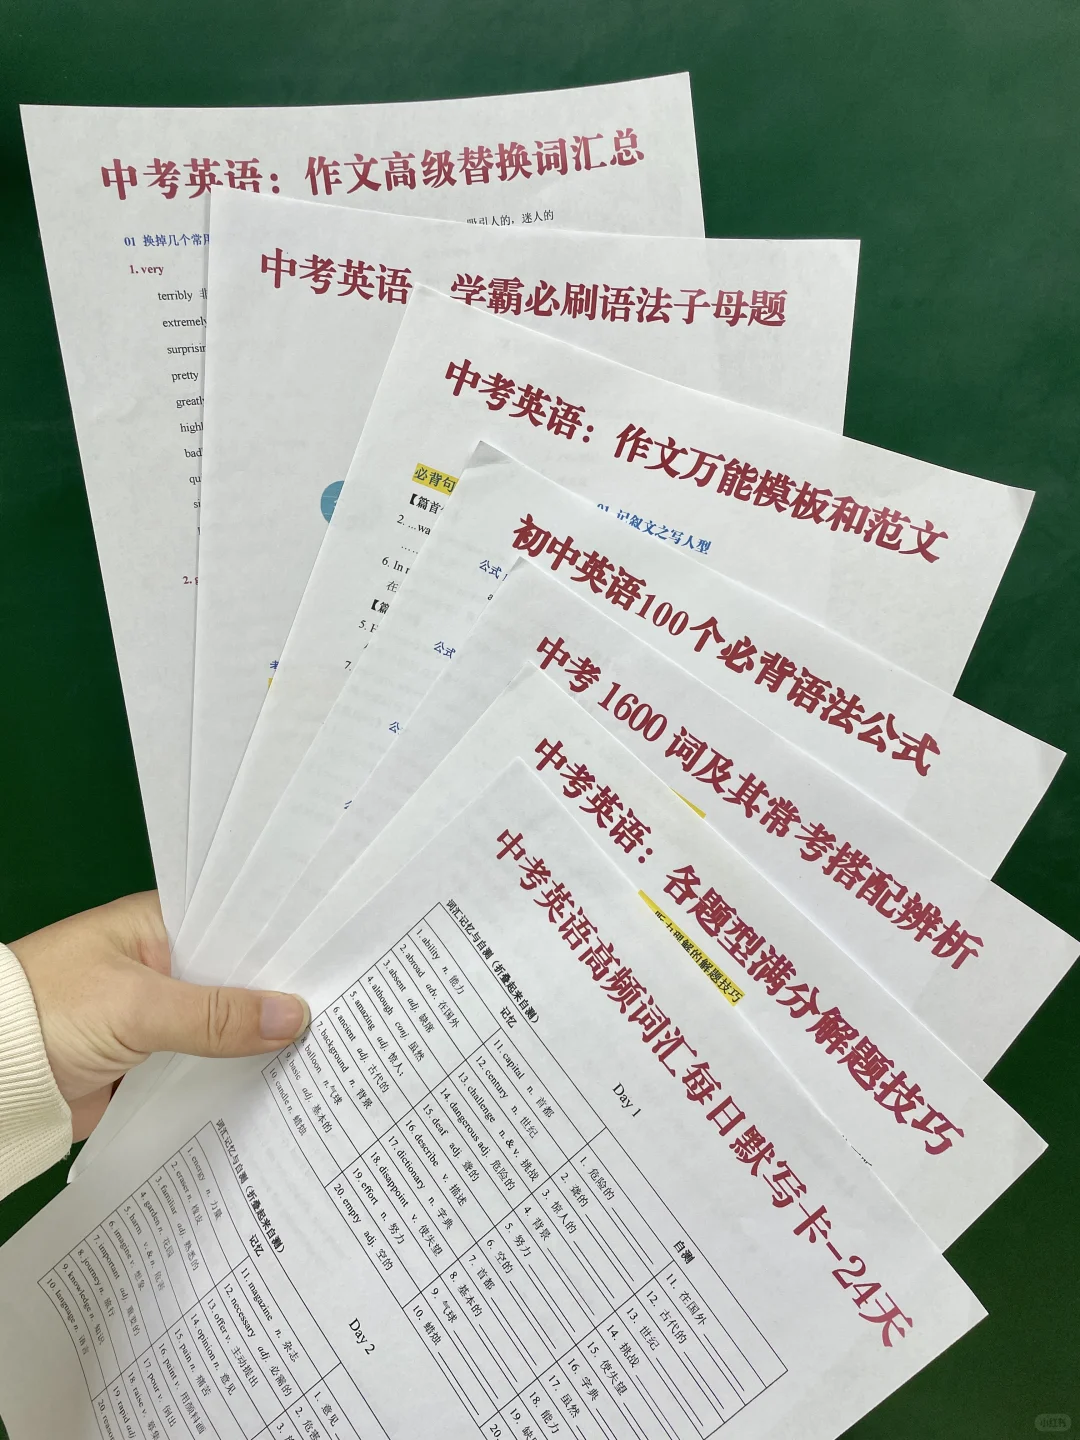 中考英语：作文高级替换词汇总
吸引人的，迷人的
01 换掉几个常用
1. very
terribly 非
extremely
surprisin
pretty
greatl
highl
bad
qu
si
2. g
中考英语 学霸必刷语法子母题
中考英语：作文万能模板和范文
01 记叙文之写人型
必背句
【篇首
2. ...wa
6. In r
在
【篇
5. H
7.
初中英语100个必背语法公式
公式
a
公式
公
中考 1600 词及其常考搭配辨析
中考英语：各题型满分解题技巧
的解题技巧
中考英语高频词汇每日默写卡-24天
Day 1
词汇记忆与自测（折叠起来自测）
记忆
自测
1. ability n. 能力
2. abroad adv. 在国外
3. absent adj. 缺席
4. although conj. 虽然
5. amazing adj. 惊人；
6. ancient adj. 古代的
7. background n. 背景
8. balloon n. 气球
9. basic adj. 基本的
10. candle n. 蜡烛
11. capital n. 首都
12. century n. 世纪
13. challenge n. & v. 挑战
14. dangerous adj. 危险的
15. deaf adj. 聋的
16. describe v. 描述
17. dictionary n. 字典
18. disappoint v. 使失望
19. effort n. 努力
20. empty adj. 空的
1. 危险的
2. 聋的
3. 惊人的
4. 背景
5. 努力
6. 空的
7. 首都
8. 基本的
9. 气球
10. 蜡烛
11. 在国外
12. 古代的
13. 世纪
14. 挑战
15. 使失望
16. 字典
17. 虽然
18. 能力
19. 缺
20.
Day 2
词汇记忆与自测（折叠起来自测）
记忆
1. energy n. 力量
2. eraser n. 橡皮
3. familiar adj. 熟悉的
4. garden n. 花园
5. harm v. & n. 危害
6. imagine v. 想象
7. important adj. 重要的
8. journey n. 旅行
9. knowledge n. 知识
10. language n. 语言
11. magazine n. 杂志
12. necessary adj. 必需的
13. offer v. 主动提出
14. opinion n. 意见
15. pain n. 痛苦
16. paint v. 用颜料画
17. pour v. 倒出
18. raise v. 募集
19. rapid adj
20. reason
1. 意见
2. 危害
3.
小红书